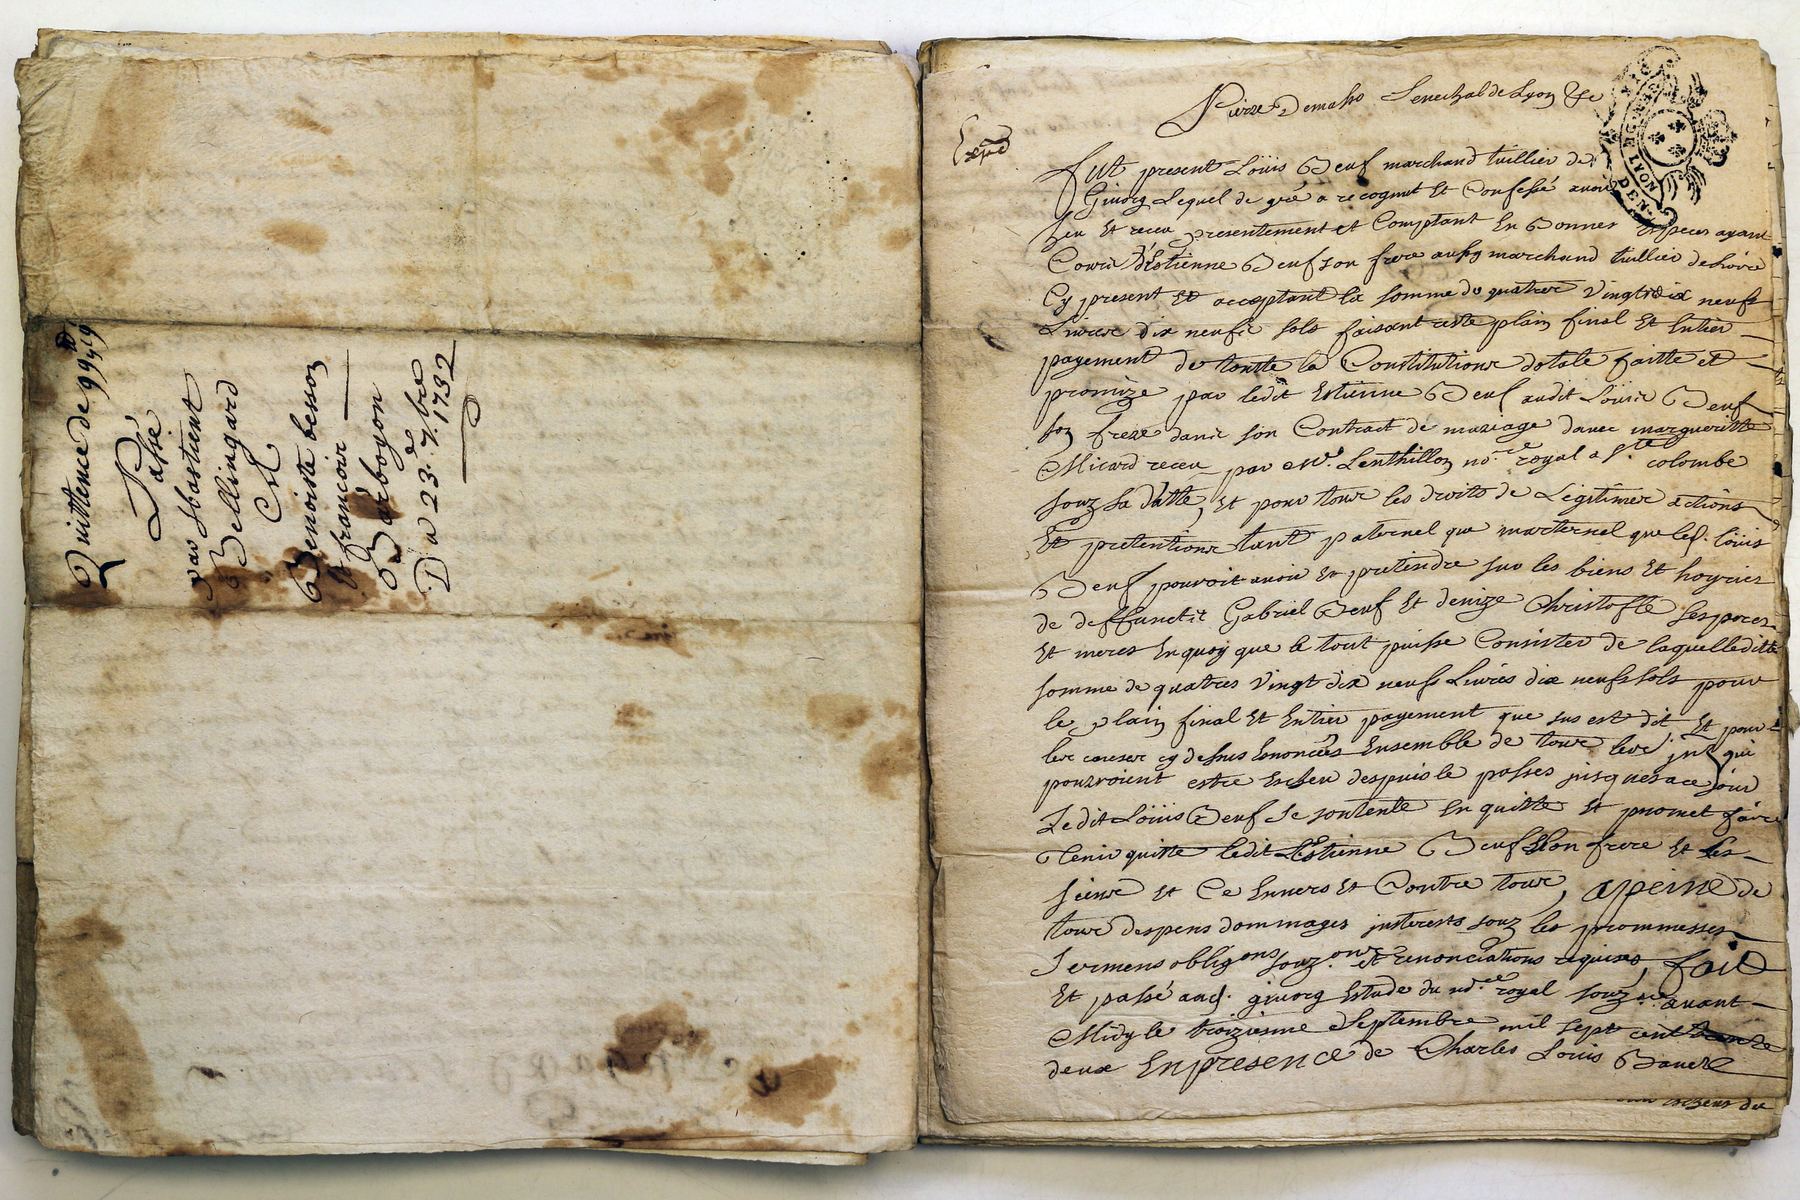 Quittence de 99ᵗᵗ 19
Passé
par sbastient
Bellingard
et
Benoiste besson
& francoir
Barboyon
Du 23.e 7.bre
1732
Pierre Demasso Senechal de Lyon &c
Exped
GENERALITE DE LYON DEN.
fut present Loüis Beuf marchand tuillier de
Givorg Lequel de gré a recognut et Confessé avoir
heu et receu presentement et Comptant En Bonnes Especes ayant
Cours d'Estienne Beuf son frere aussy marchand tuillier de
Cy present et acceptant la somme de quatre vingt dix neufs
Livres dix neufs sols faisant reste plain final et Entier
payement de toutte la Constitutions dotale faitte et
promize par ledit Estienne Beuf audit Loüis Beuf
son frere dans son Contract de mariage davec margueritte
Micard receu par Me. Lenthillon no.re royal a S.te colombe
souz sa datte, et pour tous les droits de Legitimes actions
Et pretentions tant paternel que marternel que led. loüis
Beuf pouvoit avoir et pretendre sur les biens et hoyries
de deffunctz Gabriel Beuf et denize Christofle ses peres
et meres En quoy que le tout puisse Consister de laquelleditte
somme de quatres vingt dix neufs Livres dix neufs sols pour
le plain final et Entier payement que sus est dit Et pour
les causes cy dessus Enoncées Ensemble de tous les jnt qui
pourroient estre Escheu despuis le passes jusques a ce jour
Ledit Loüis Beuf se contente En quitte et promet faire
Tenir quitte ledit Estienne Beuf son frere et les
siens et Ce Envers et Contre tous, a peine de
tous despens dommages jnterests souz les prommesses
Sermens obligons souz.ons et renonciations requises, fait
Et passé aud. givorg Estude du no.re royal souz.né avant
Midy le troizieme Septembre mil sept cent trente
deux En presence de Charles Louis